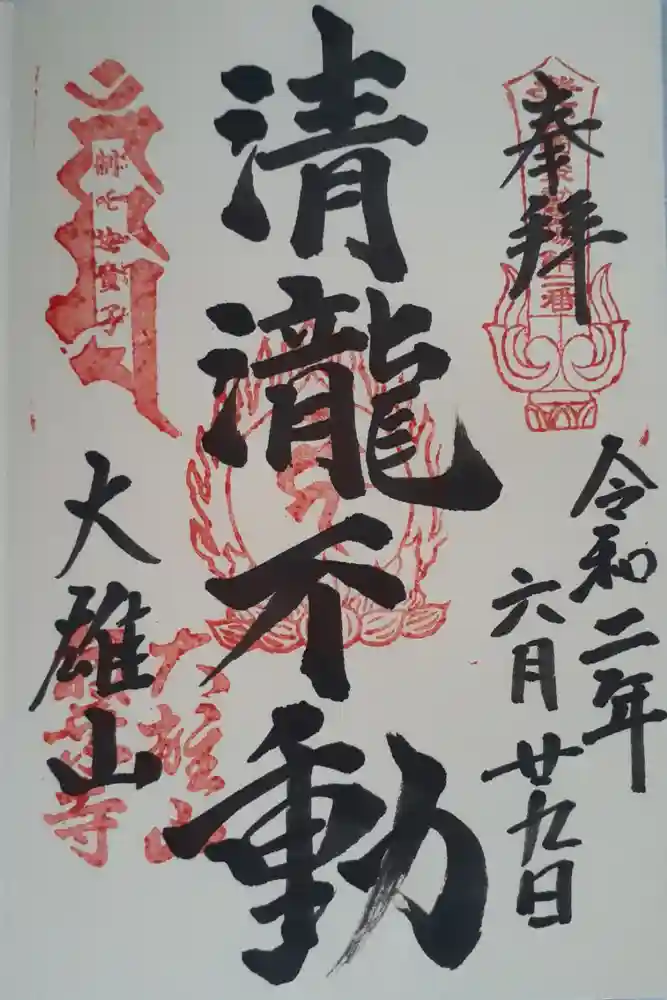 奉拝
令和二年
六月廿九日
清瀧不動
大雄山
大雄山